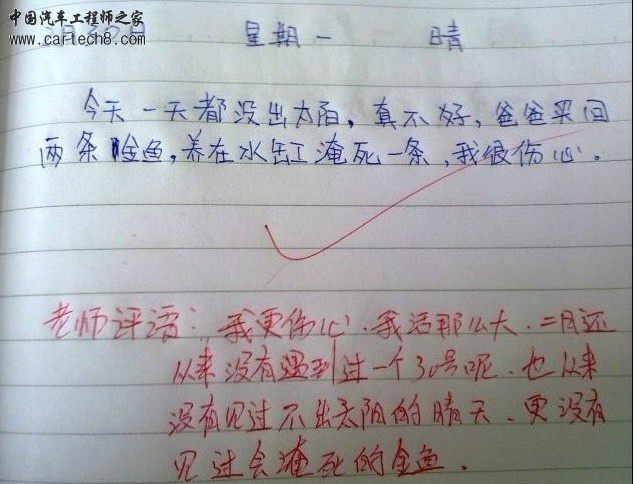 中国汽车工程师之家
www.cartech8.com
月30日 星期一 晴
今天一天都没出太阳，真不好，爸爸买回
两条金鱼，养在水缸淹死一条，我很伤心。
老师评语：我更伤心．我活那么大．二月还
从来没有遇到过一个30号呢．也从来
没有见过不出太阳的晴天、更没有
见过会淹死的金鱼．